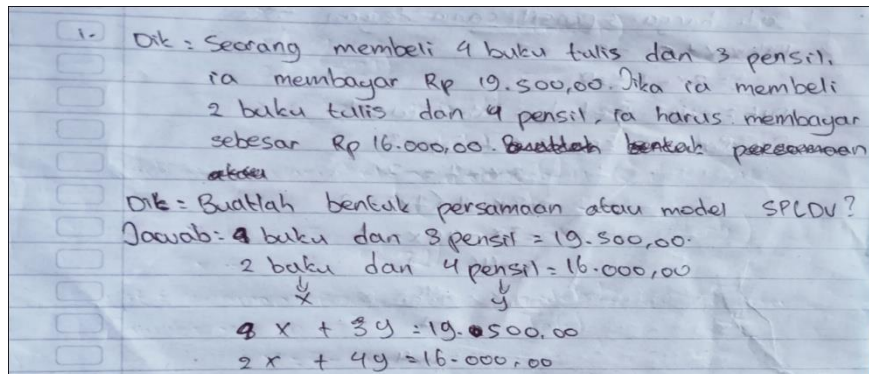 1. Dik = Seorang membeli 4 buku tulis dan 3 pensil.
ia membayar Rp 19.500,00. Jika ia membeli
2 buku tulis dan 4 pensil, ia harus membayar
sebesar Rp 16.000,00.
Dik = Buatlah bentuk persamaan atau model SPLDV?
Jawab = 4 buku dan 3 pensil = 19.500,00.
2 buku dan 4 pensil = 16.000,00
x y
4x + 3y = 19.500,00
2x + 4y = 16.000,00